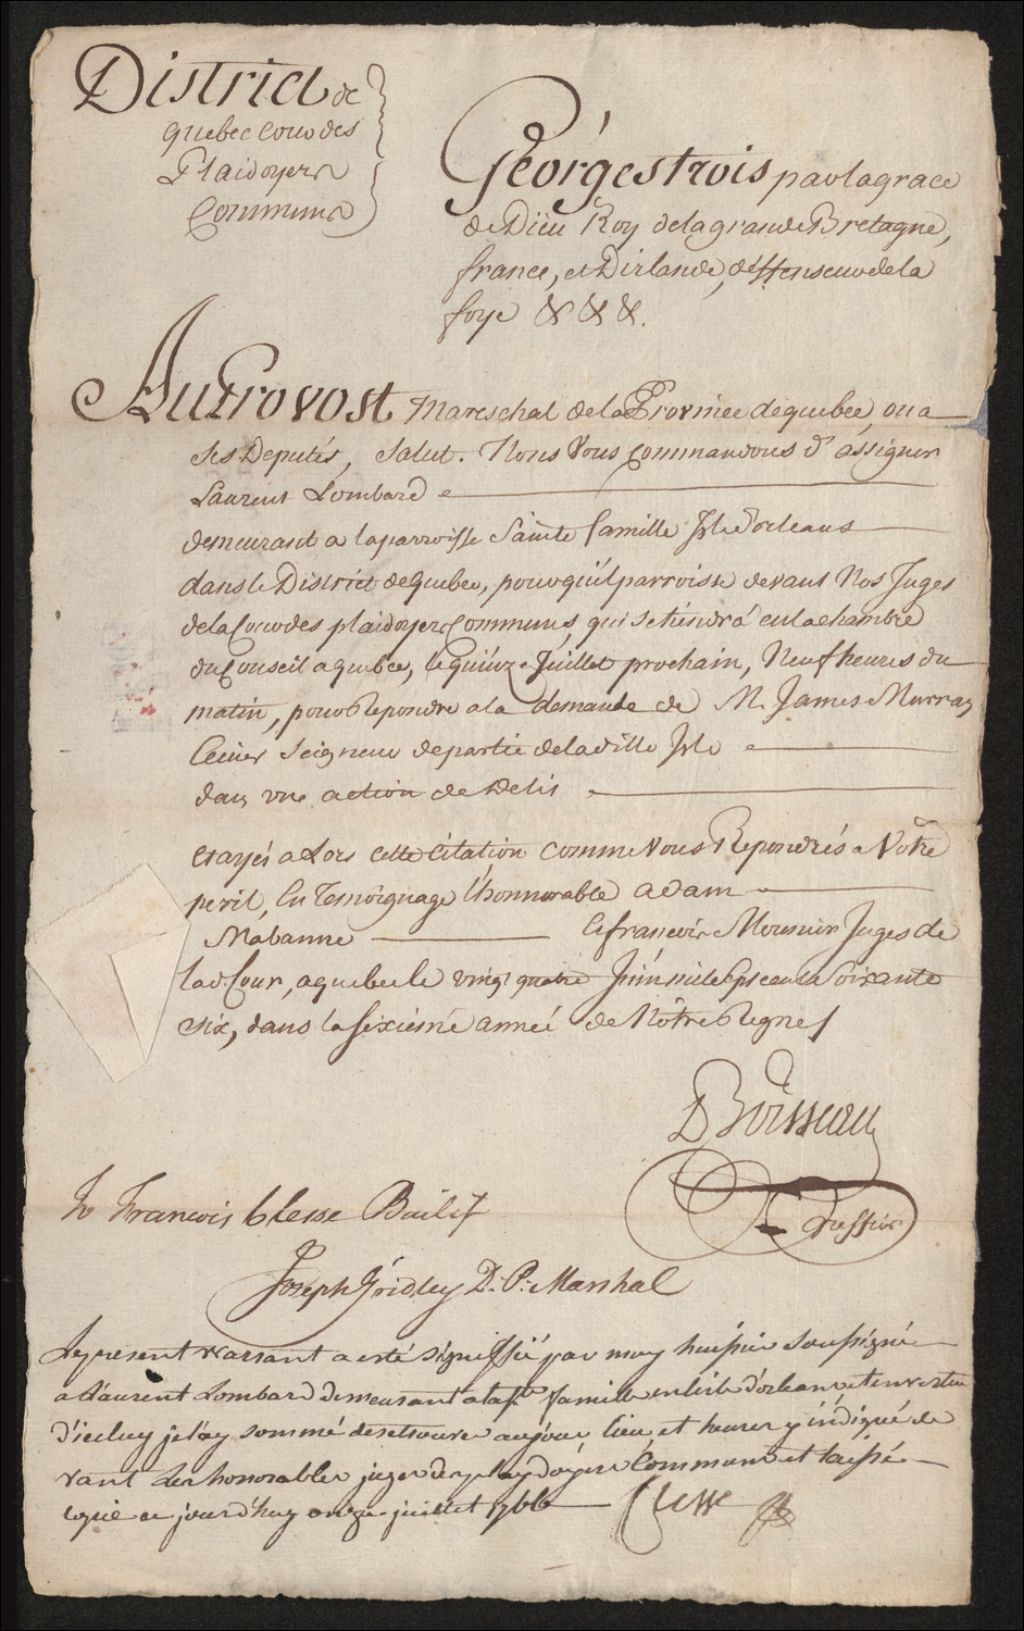 District de
Quebec Cour des
Plaidoyers
Communs
Georges trois par la grace
de Dieu Roy de la grande Bretagne,
france, et D'irlande, déffenseur de la
foye & & &.
Au Provost Mareschal de la Province de quebec, ou a
ses Deputés, Salut. Nous Vous commandons d'assigner
Laurent Lombard
demeurant a la parroisse Sainte famille Isle d'orleans
dans le District de Quebec, pour qu'il parroisse devant Nos Juges
de la Cour des plaidoyers Communs, qui se tiendrá en la chambre
du Conseil a quebec, le quinze Juillet prochain, Neuf heures du
matin, pour Repondre a la demande de M. James Murray
Ecuier Seigneur de partie de la ditte Isle
dans une action de Debit
et ayés a Lors cette Citation comme Vous Repondrés a Votre
peril, En Temoignage l'honnorable adam
Mabanne et francois Mounier Juges de
lad. Cour, a quebec le vingt quatre Juin mile Sept cent Soixante
six, dans la sixiéme anneé de Nôtre Regne
D Boisseau
Greffier
To Francois Clesse Bailif
Joseph Gridley D. P. Marshal
Le present warrant a esté signiffié par moy huissier soussigné
a Laurent Lombard demeurant a la Ste famille en l'isle d'orleans, et en vertu
d'iceluy je l'ay sommé de se trouver au jour, lieu, et heures y indiqué de
vant les honorables juges des playdoyers Commun et laissé
copie ce jourd'huy onze juillet 1766 Clesse